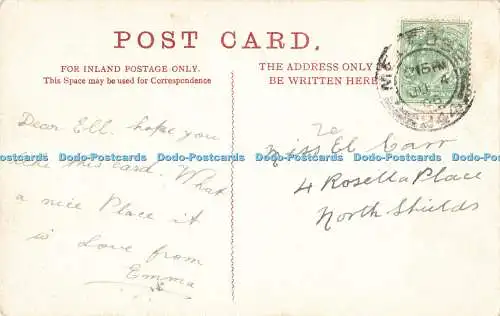 POST CARD.
FOR INLAND POSTAGE ONLY.
This Space may be used for Correspondence
THE ADDRESS ONLY
BE WRITTEN HERE
Dear Ell. hope you
like this Card. What
a nice Place it
is Love from
Emma
Miss El Carr
4 Rosella Place
North Shields
Dodo-Postcards Dodo-Postcards Dodo-Postcards Dodo-Postcards Dodo-Postcards Dodo-Postcards